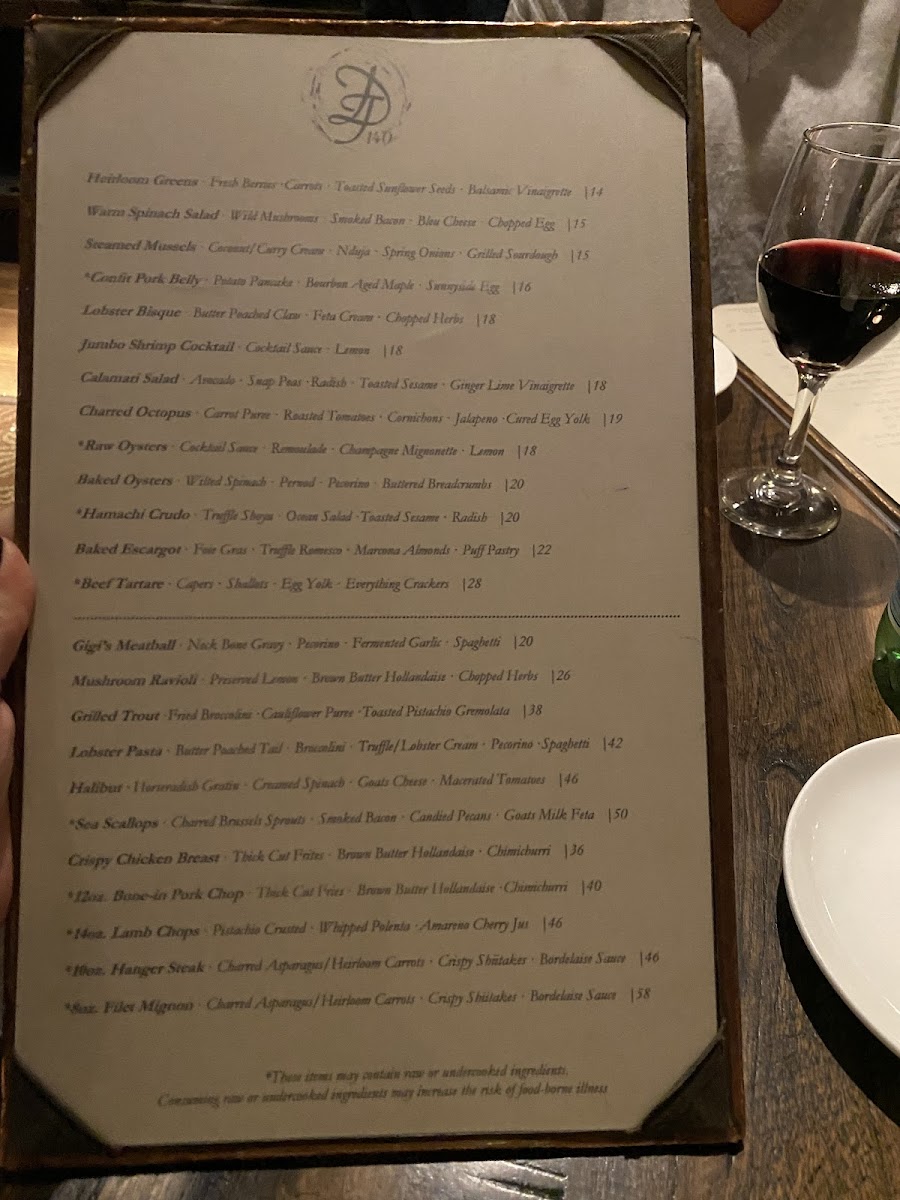 140
Heirloom Greens · Fresh Berries · Carrots · Toasted Sunflower Seeds · Balsamic Vinaigrette |14
Warm Spinach Salad · Wild Mushrooms · Smoked Bacon · Bleu Cheese · Chopped Egg |15
Steamed Mussels · Coconut/Curry Cream · Nduja · Spring Onions · Grilled Sourdough |15
*Confit Pork Belly · Potato Pancake · Bourbon Aged Maple · Sunnyside Egg |16
Lobster Bisque · Butter Poached Claw · Feta Cream · Chopped Herbs |18
Jumbo Shrimp Cocktail · Cocktail Sauce · Lemon |18
Calamari Salad · Avocado · Snap Peas · Radish · Toasted Sesame · Ginger Lime Vinaigrette |18
Charred Octopus · Carrot Puree · Roasted Tomatoes · Cornichons · Jalapeno · Cured Egg Yolk |19
*Raw Oysters · Cocktail Sauce · Remoulade · Champagne Mignonette · Lemon |18
Baked Oysters · Wilted Spinach · Pernod · Pecorino · Buttered Breadcrumbs |20
*Hamachi Crudo · Truffle Shoyu · Ocean Salad · Toasted Sesame · Radish |20
Baked Escargot · Foie Gras · Truffle Romesco · Marcona Almonds · Puff Pastry |22
*Beef Tartare · Capers · Shallots · Egg Yolk · Everything Crackers |28
Gigi's Meatball · Neck Bone Gravy · Pecorino · Fermented Garlic · Spaghetti |20
Mushroom Ravioli · Preserved Lemon · Brown Butter Hollandaise · Chopped Herbs |26
Grilled Trout · Fried Broccolini · Cauliflower Puree · Toasted Pistachio Gremolata |38
Lobster Pasta · Butter Poached Tail · Broccolini · Truffle/Lobster Cream · Pecorino · Spaghetti |42
Halibut · Horseradish Gratin · Creamed Spinach · Goats Cheese · Macerated Tomatoes |46
*Sea Scallops · Charred Brussels Sprouts · Smoked Bacon · Candied Pecans · Goats Milk Feta |50
Crispy Chicken Breast · Thick Cut Frites · Brown Butter Hollandaise · Chimichurri |36
*12oz. Bone-in Pork Chop · Thick Cut Fries · Brown Butter Hollandaise · Chimichurri |40
*14oz. Lamb Chops · Pistachio Crusted · Whipped Polenta · Amareno Cherry Jus |46
*10oz. Hanger Steak · Charred Asparagus/Heirloom Carrots · Crispy Shiitakes · Bordelaise Sauce |46
*8oz. Filet Mignon · Charred Asparagus/Heirloom Carrots · Crispy Shiitakes · Bordelaise Sauce |58
*These items may contain raw or undercooked ingredients.
Consuming raw or undercooked ingredients may increase the risk of food-borne illness